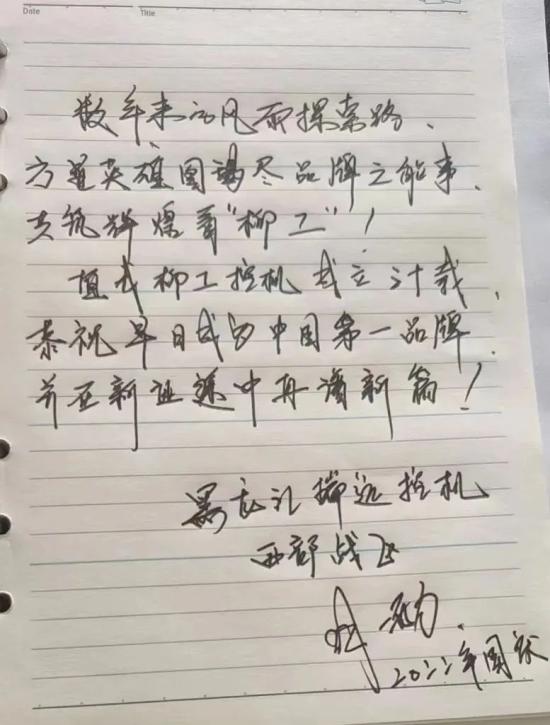 Date Title
数年来的风雨探索路、
方道英雄图谒尽品牌之能事、
共筑辉煌看“柳工”！
值我柳工挖机成立卅载，
恭祝早日成为中国第一品牌，
并在新征途中再谱新篇！
黑龙江 挖机
西部战区
2022年国庆